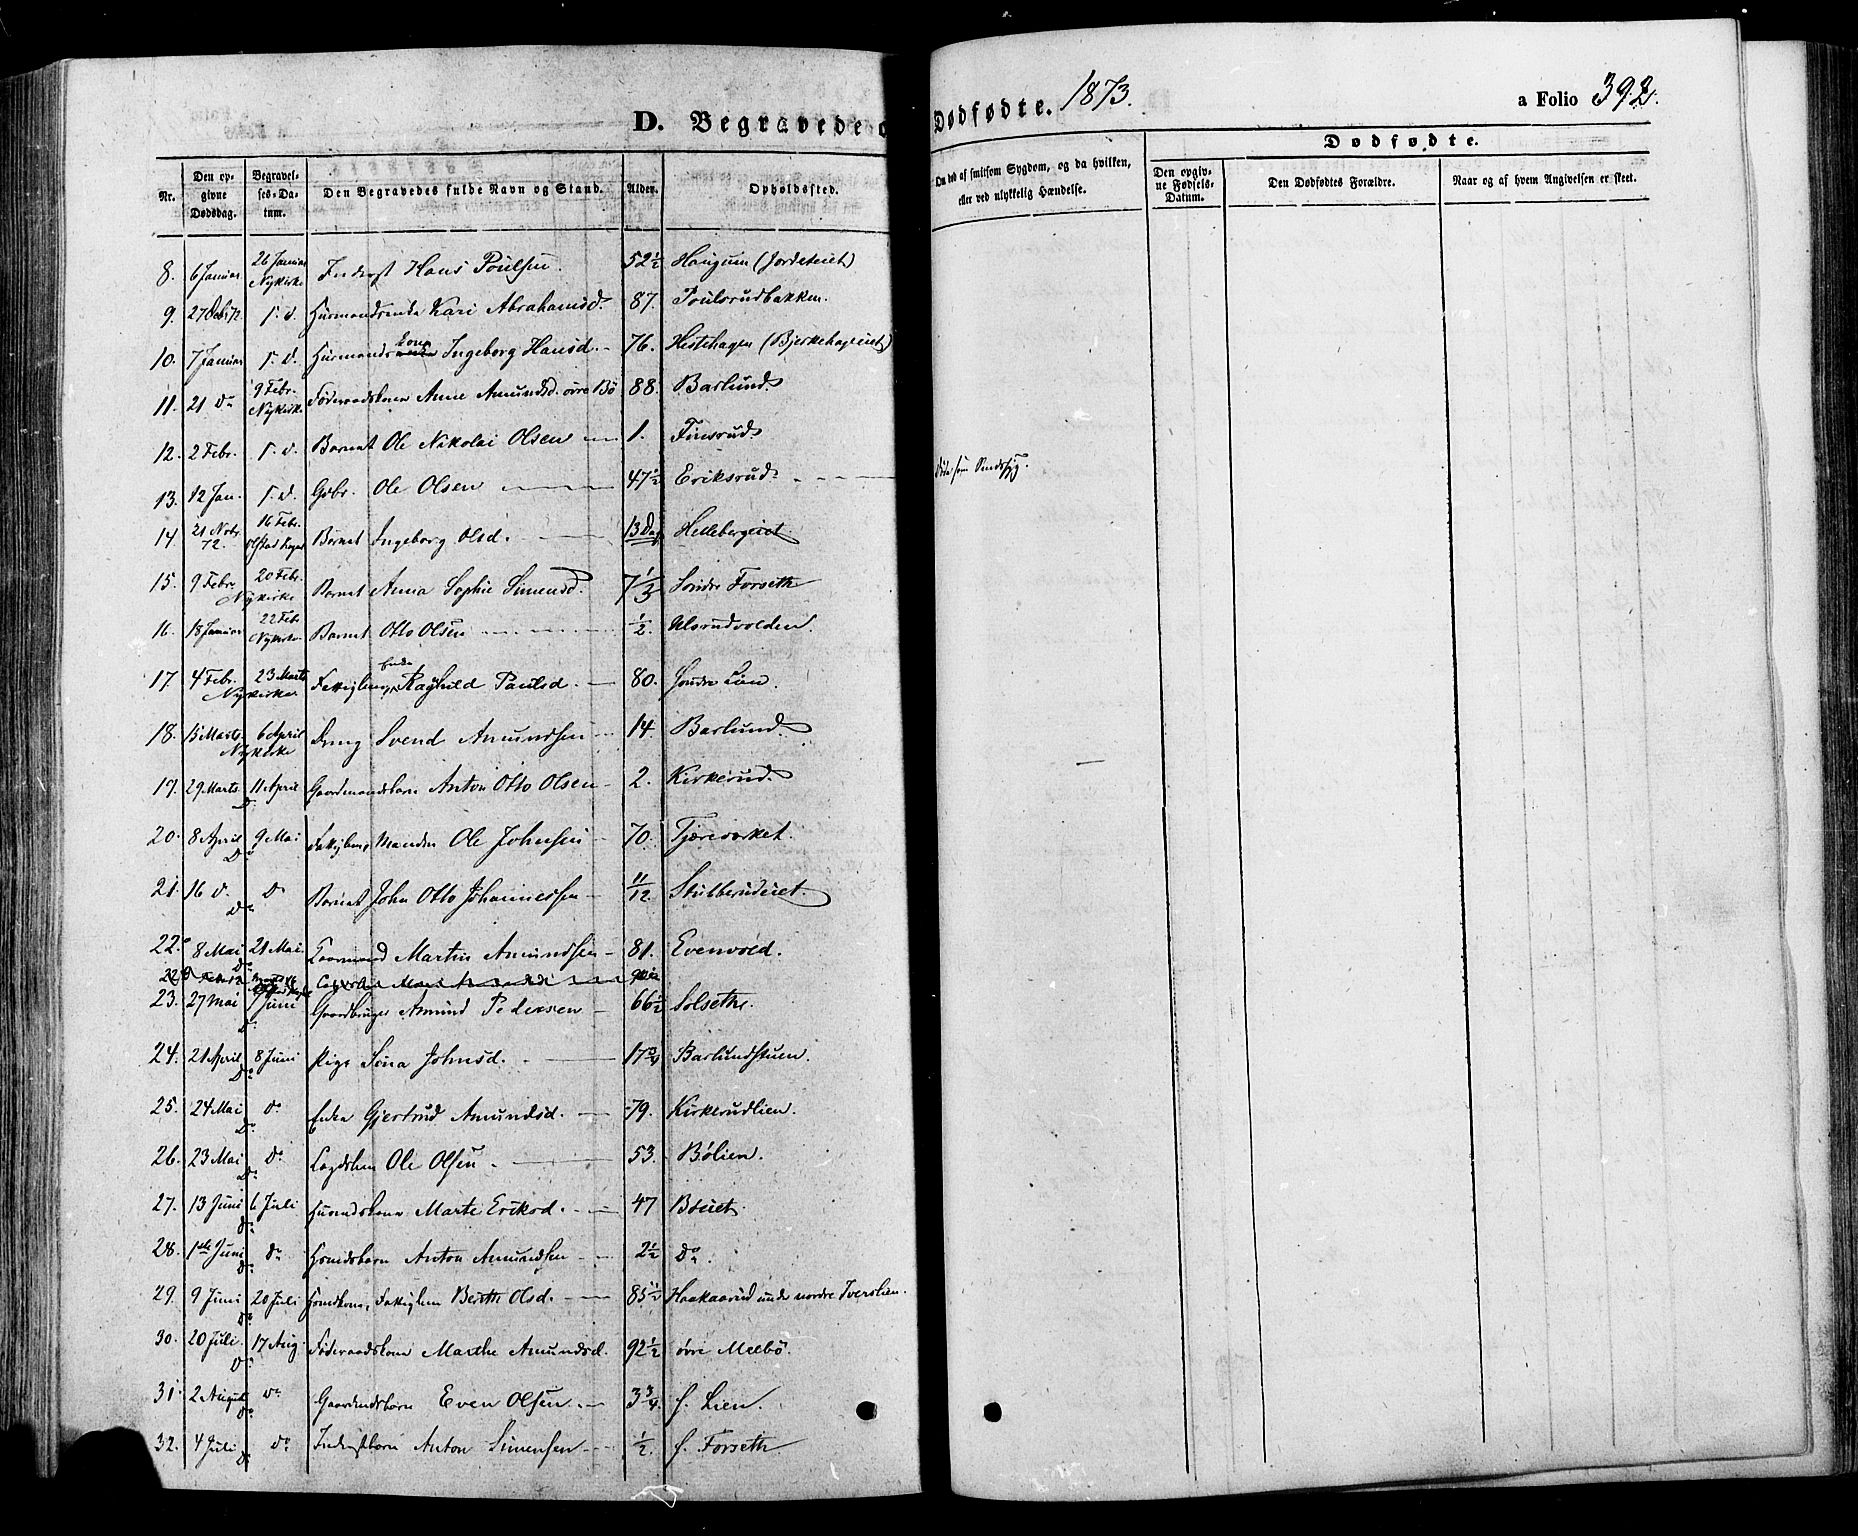 D. Begravede o
Dødfødte. 1873. a Folio 392.
Nr. Den opgivne Dødsdag. Begravelses-Datum. Den Begravedes fulde Navn og Stand. Alder. Opholdssted.
Om død af smitsom Sygdom, og da hvilken, eller ved ulykkelig Hændelse.
Dødfødte.
Den opgivne Fødsels-Datum. Den Dødfødtes Forældre. Naar og af hvem Angivelsen er skeet.
8. 6 Januar 26 Januar Nykirke Inderst Hans Poulsen. 52½ Haugum (Jordeteiet)
9. 27 Decbr 72. s. d. Huusmandsenke Kari Abrahamsd. 87. Poulsrudbakken.
10. 7 Januar s. d. Huusmandskone Ingeborg Hansd. 76. Hestehagen (Bjerkehageeiet)
11. 21 Do 9 Febr. Nykirke Føderaadskone Anne Amundsd. øvre Bø 88. Barlund
12. 2 Febr. s. d. Barnet Ole Nikolai Olsen 1. Finsrud
13. 12 Jan. s. d. Gbr. Ole Olsen 47½ Eriksrud Døde som Sindssyg.
14. 21 Novbr 72. 16 Febr. Olstad Barnet Ingeborg Olsd. 13 Dag Hellebergeiet
15. 9 Febr. 20 Febr. Nykirke Barnet Anna Sophie Simensd. 7 1/3 Søndre Forseth
16. 18 Januar 22 Febr Nykirke Barnet Otto Olsen ½. Ulsrudvolden.
17. 4 Febr. 23 Marts Nykirke Fattiglem, Enke Raghild Paulsd. 80. Søndre Lien.
18. 15 Marts. 6 April Nykirke Dreng Svend Amundsen 14 Barlund
19. 29 Marts. 11 April Do Gaardmandsbarn Anton Otto Olsen 2. Kirkerud
20. 8 April 9 Mai Do Fattiglem, Manden Ole Johnsen 70. Tjæreverket.
21. 16 d. Do Do Barnet John Otto Johannessen 11/12. Stubberudeiet.
22. 8 Mai 21 Mai. Do Gaarmand Martin Amundsen 81. Evenvold.
23. 27 Mai 7 Juni Do Gaardbruger Amund Pedersen 66½ Solseth.
24. 21 April 8 Juni Do Pige Sina Johnsd. 17¾ Barlundstuen.
25. 24 Mai Do Do Enke Gjertrud Amundsd. 79. Kirkerudlien.
26. 23 Mai Do Do Lægdslem Ole Olsen 53. Bølien.
27. 13 Juni 6 Juli Do Huusmdskone Marte Eriksd. 47 Bøeiet.
28. 1ste Juni Do Do Hsmdsbarn Anton Amundsen 2½ Do.
29. 9 Juni 20 Juli Do Hsmdkone, Fattiglem Berthe Olsd. 85½ Haakaarud under nordre Iverslien.
30. 20 Juli 17 Aug. Do Føderaadskone Marthe Amundsd. 92½ øvre Melbø.
31. 2 August Do Do Gaardmdsbarn Even Olsen. 3¾ s. Lien.
32. 4 Juli Do Do Inderstbarn Anton Simensen ½. s. Forseth